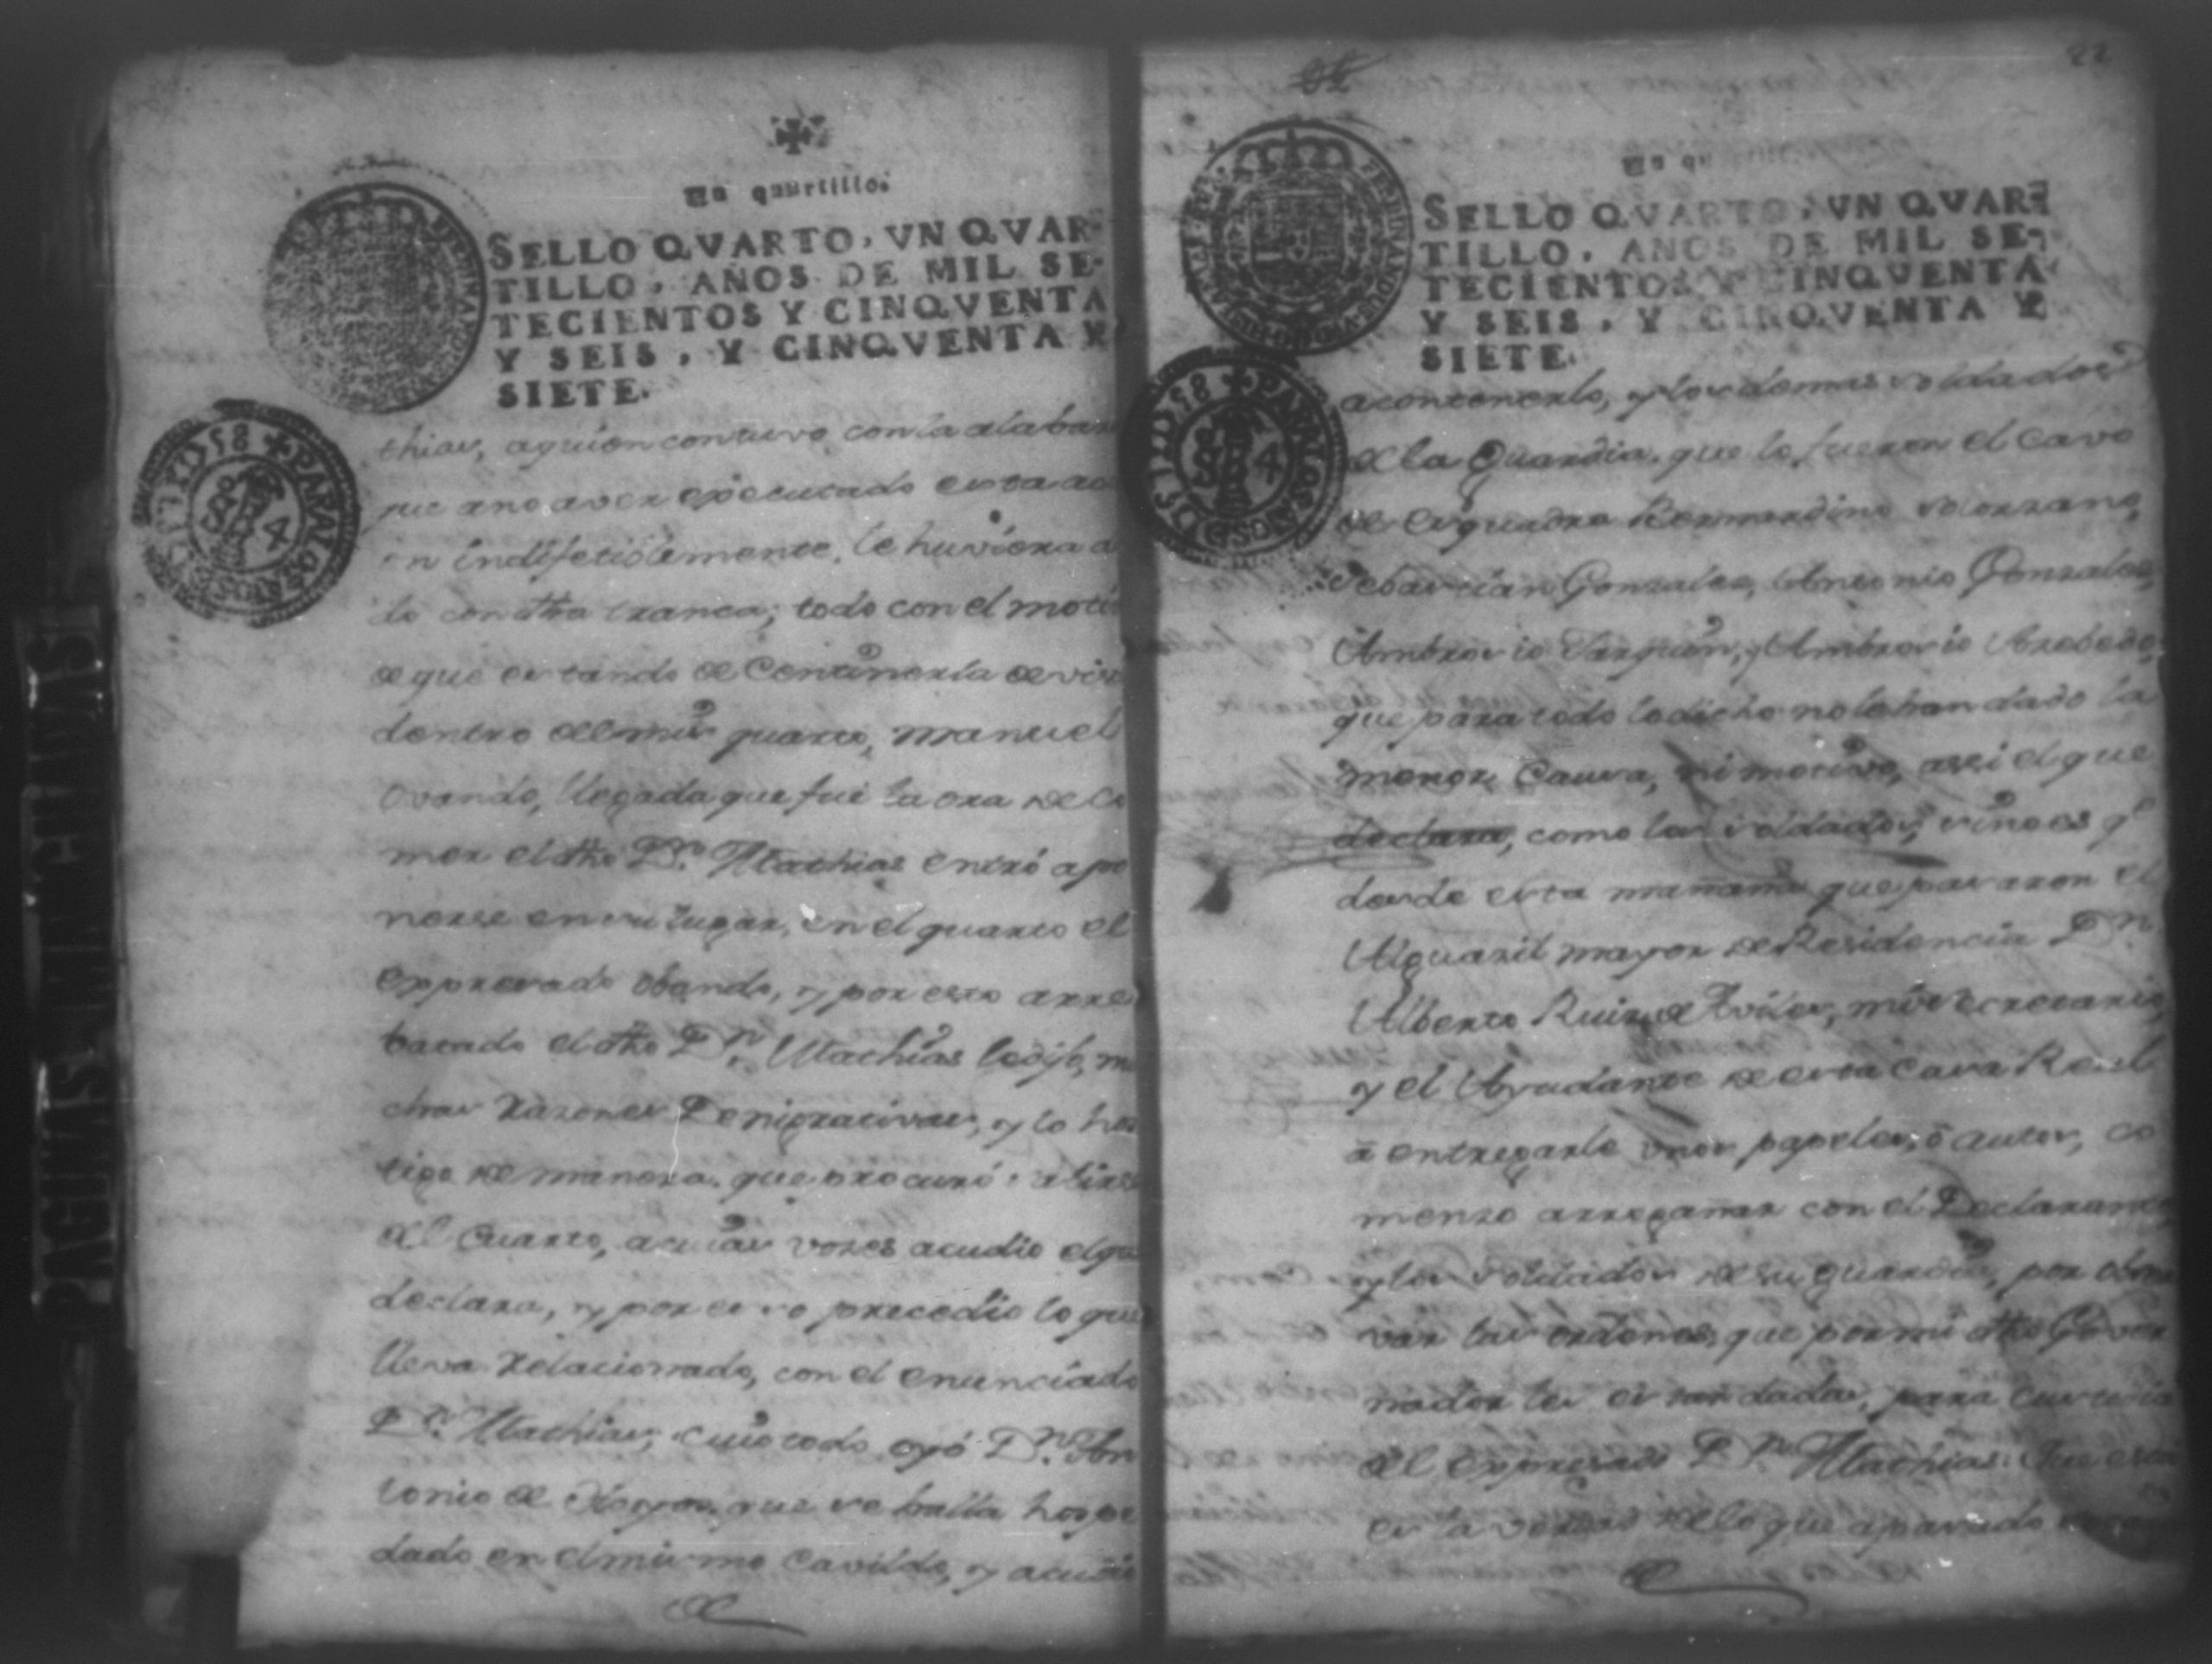 Un quartillo.
SELLO QVARTO, VN QVAR-
TILLO, AÑOS DE MIL SE-
TECIENTOS Y CINQVENTA
Y SEIS, Y CINQVENTA Y
SIETE.
PARA LOS AÑOS DE 58 Y
4
thias, a quien contuvo con la alabar
que a no aver executado esta ac
on indefetiblemente, le huviera a
do con dha tranca; todo con el moti
de que estando de Centinela de vis
dentro del mis quarto, Manuel
Obando, llegada que fue la ora de Co
mer el dho Dn. Mathias entró a po
nerse en su lugar, en el quarto el
expresado Obando, y por esto arre
batado el dho Dn. Mathias le dijo, mu
chas razones Denigrativas, y lo hos
tigo de manera que procuró
del Cuarto, a cuias vozes acudio el que
declara, y por esto precedio lo que
lleva relacionado, con el enunciado
Dn. Mathias, cuio todo oyó Dn. An
tonio de Hoyos, que se halla hospe
dado en el mismo Cavildo, y acudió
22
Un qu
SELLO QVARTO, VN QVAR-
TILLO, AÑOS DE MIL SE-
TECIENTOS Y CINQVENTA
Y SEIS, Y CINQVENTA Y
SIETE.
PARA LOS AÑOS DE 58 Y
4
a contenerlo, y los demas soldados
de la Guardia, que lo fueron el Cavo
de esquadra Bernardino Solorzano,
Sebastian Gonzales, Antonio Gonzales,
Ambrosio, y Ambrosio Azebedo,
que para todo lo dicho no le han dado la
menor Causa, ni motivo, assi el que
declara, como los soldados, sino es q.e
desde esta mañana que pasaron el
Alguazil mayor de Residencia Dn.
Alberto Ruiz de Aviles, mi Secretario,
y el Ayudante de esta Casa Real
a entregarle unos papeles, o autos, co
menzo a rregañar con el Declarante
y los soldados de su guardia, por obser
var las ordenes, que por mi dho Gover
nador les estan dadas, para custodia
del expresado Dn. Mathias: Que esta
es la verdad de lo que a pasado